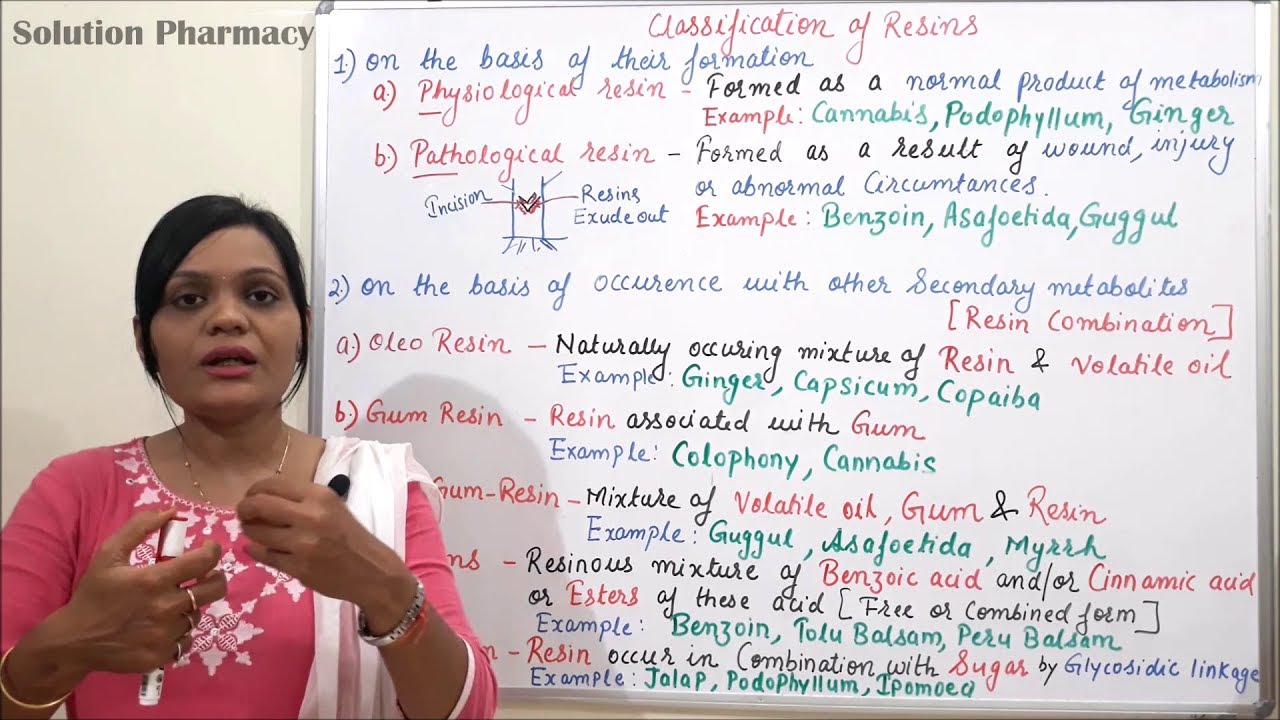 Solution Pharmacy
Classification of Resins
1.) on the basis of their formation
a.) Physiological resin - Formed as a normal product of metabolism
Example: Cannabis, Podophyllum, Ginger
b.) Pathological resin - Formed as a result of wound, injury
or abnormal Circumtances.
Incision
Resins
Exude out
Example: Benzoin, Asafoetida, Guggul
2.) on the basis of occurence with other Secondary metabolites
[Resin Combination]
a.) Oleo Resin - Naturally occuring mixture of Resin & volatile oil
Example: Ginger, Capsicum, Copaiba
b.) Gum Resin - Resin associated with Gum
Example: Colophony, Cannabis
Gum-Resin - Mixture of Volatile oil, Gum & Resin
Example: Guggul, Asafoetida, Myrrh
ns - Resinous mixture of Benzoic acid and/or Cinnamic acid
or Esters of these acid [Free or Combined form]
Example: Benzoin, Tolu Balsam, Peru Balsam
n - Resin occur in Combination with Sugar by Glycosidic linkage
Example: Jalap, Podophyllum, Ipomoea